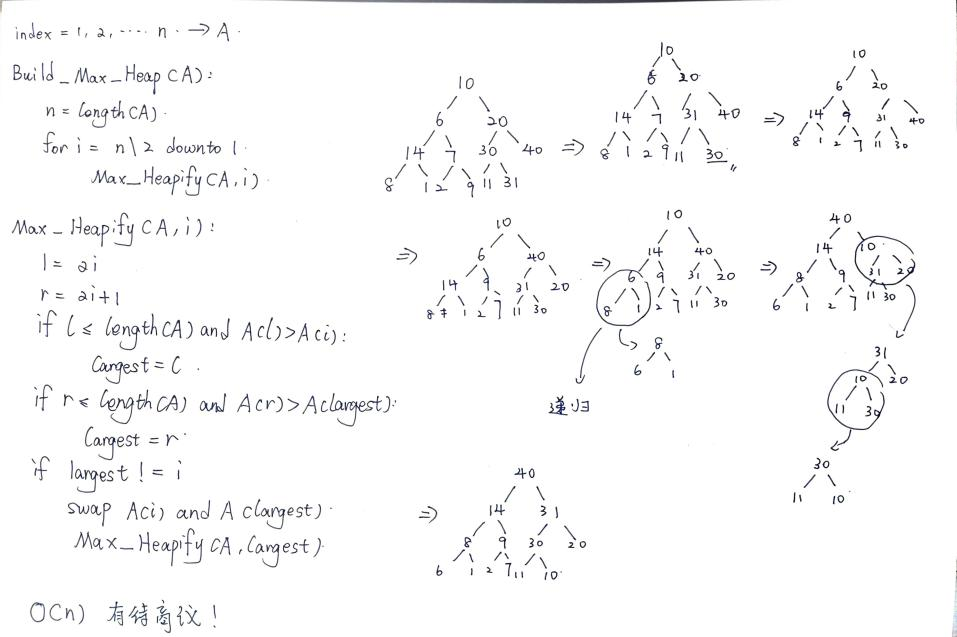 index = 1, 2, ..... n. → A.
Build_Max_Heap (A):
n = length(A).
for i = n\2 downto 1.
Max_Heapify(A, i).
Max_Heapify (A, i):
l = 2i
r = 2i+1
if l ≤ length(A) and A(l)>A(i):
largest = l.
if r ≤ length(A) and A(r)>A(largest):
largest = r.
if largest != i
swap A(i) and A(largest).
Max_Heapify (A, largest).
O(n) 有待商议!
10
6 20
14 7 30 40
8 1 2 9 11 31
⇒
10
6 20
14 7 31 40
8 1 2 9 11 30
⇒
10
6 20
14 9 31 40
8 1 2 7 11 30
⇒
10
6 40
14 9 31 20
8 1 2 7 11 30
⇒
10
14 40
6 9 31 20
8 1 2 7 11 30
8
6 1
递归
⇒
40
14 10
8 9 31 20
6 1 2 7 11 30
31
10 20
11 30
30
11 10
⇒
40
14 31
8 9 30 20
6 1 2 7 11 10